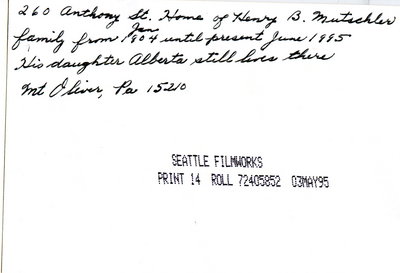 260 Anthony St. Home of Henry B. Mutschler
family from Jan 1904 until present June 1995
His daughter Alberta still lives there
Mt Oliver, Pa 15210
SEATTLE FILMWORKS
PRINT 14 ROLL 72405852 03MAY95